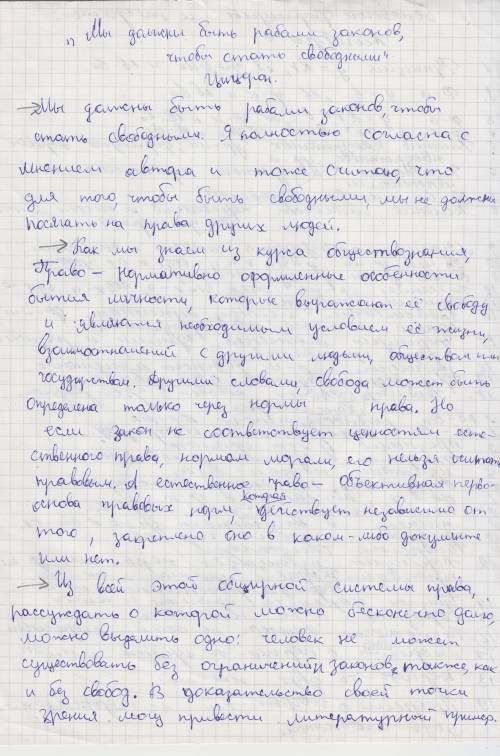 „Мы должны быть рабами законов,
чтобы стать свободными“
Цицерон.
→ Мы должны быть рабами законов, чтобы
стать свободными. Я полностью согласна с
мнением автора и тоже считаю, что
для того, чтобы быть свободными, мы не должны
посягать на права других людей.
→ Как мы знаем из курса обществознания,
Право – нормативно оформленные особенности
бытия личности, которые выражают её свободу
и являются необходимым условием её жизни,
взаимоотношений с другими людьми, обществом или
государством. Другими словами, свобода может быть
определена только через нормы права. Но
если закон не соответствует ценностям есте-
ственного права, нормам морали, его нельзя считать
правовым. А естественное право – объективная перво-
основа правовых норм, которая действует независимо от
того, закреплено оно в каком-либо документе
или нет.
→ Из всей этой обширной системы права,
рассуждать о которой можно бесконечно долго,
можно выделить одно: человек не может
существовать без ограничений и законов, также, как
и без свобод. В доказательство своей точки
зрения могу привести литературный пример.